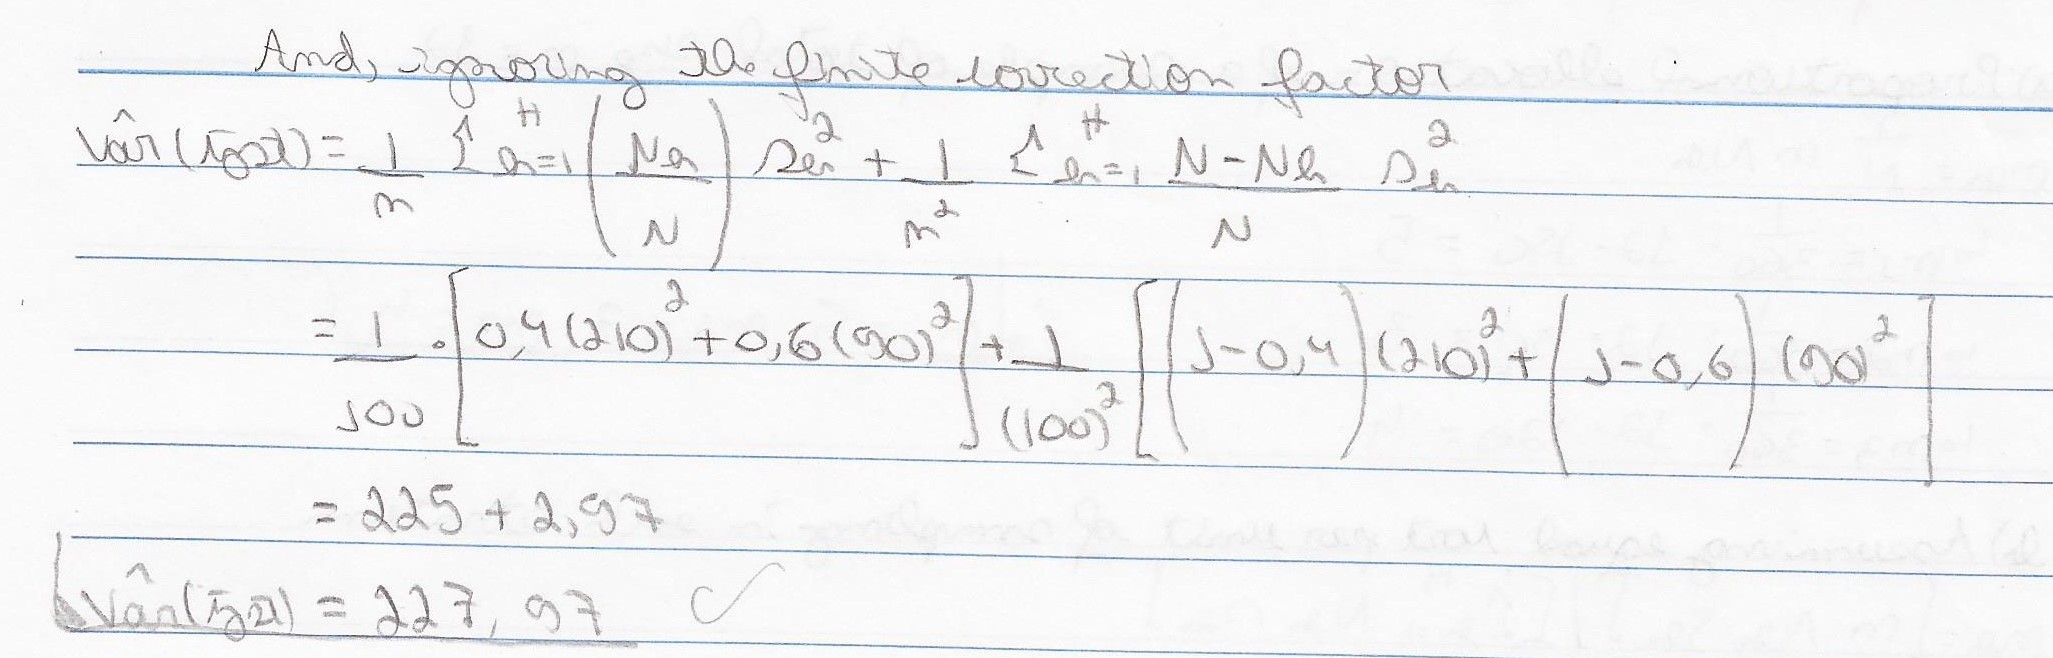 And, ignoring the finite correction factor
Vâr(ȳst) = 1/n Σ_{h=1}^{H} (Nh/N) s_h^2 + 1/n^2 Σ_{h=1}^{H} (N-Nh)/N s_h^2
= 1/100 · [0,4(210)^2 + 0,6(90)^2] + 1/(100)^2 [(1-0,4)(210)^2 + (1-0,6)(90)^2]
= 225 + 2,97
Vâr(ȳst) = 227,97 ✓